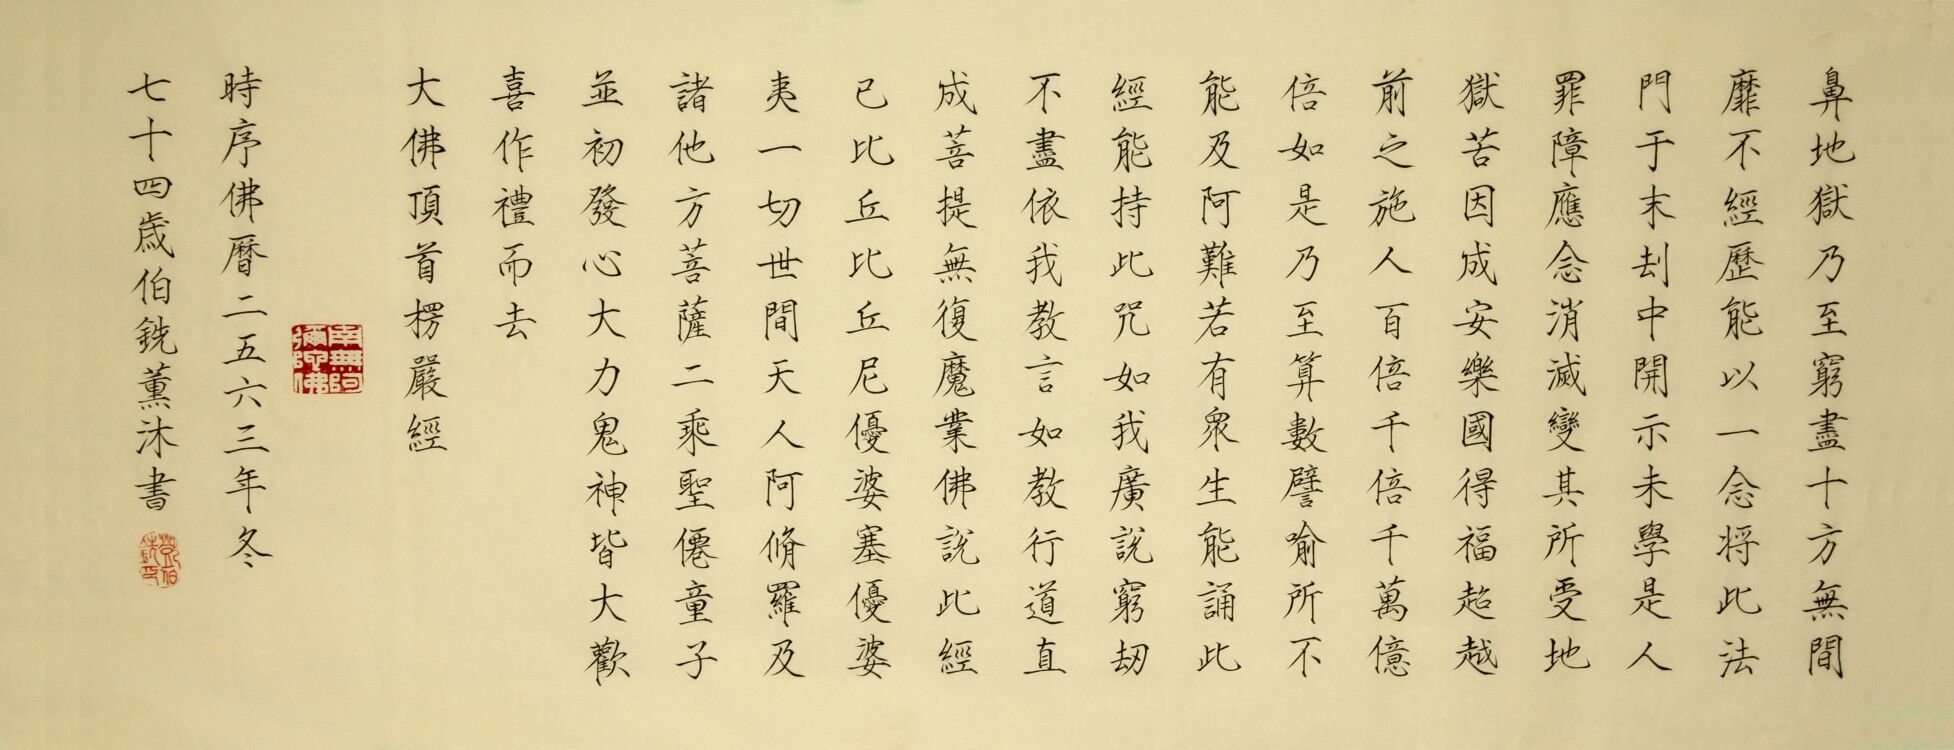 鼻地獄乃至窮盡十方無間
靡不經歷能以一念将此法
門于末刦中開示未學是人
罪障應念消滅變其所受地
獄苦因成安樂國得福超越
前之施人百倍千倍千萬億
倍如是乃至算數譬喻所不
能及阿難若有眾生能誦此
經能持此咒如我廣說窮劫
不盡依我教言如教行道直
成菩提無復魔業佛說此經
已比丘比丘尼優婆塞優婆
夷一切世間天人阿脩羅及
諸他方菩薩二乘聖僊童子
並初發心大力鬼神皆大歡
喜作禮而去
大佛頂首楞嚴經
南無阿彌陀佛
時序佛曆二五六三年冬
七十四歲伯銑薰沐書